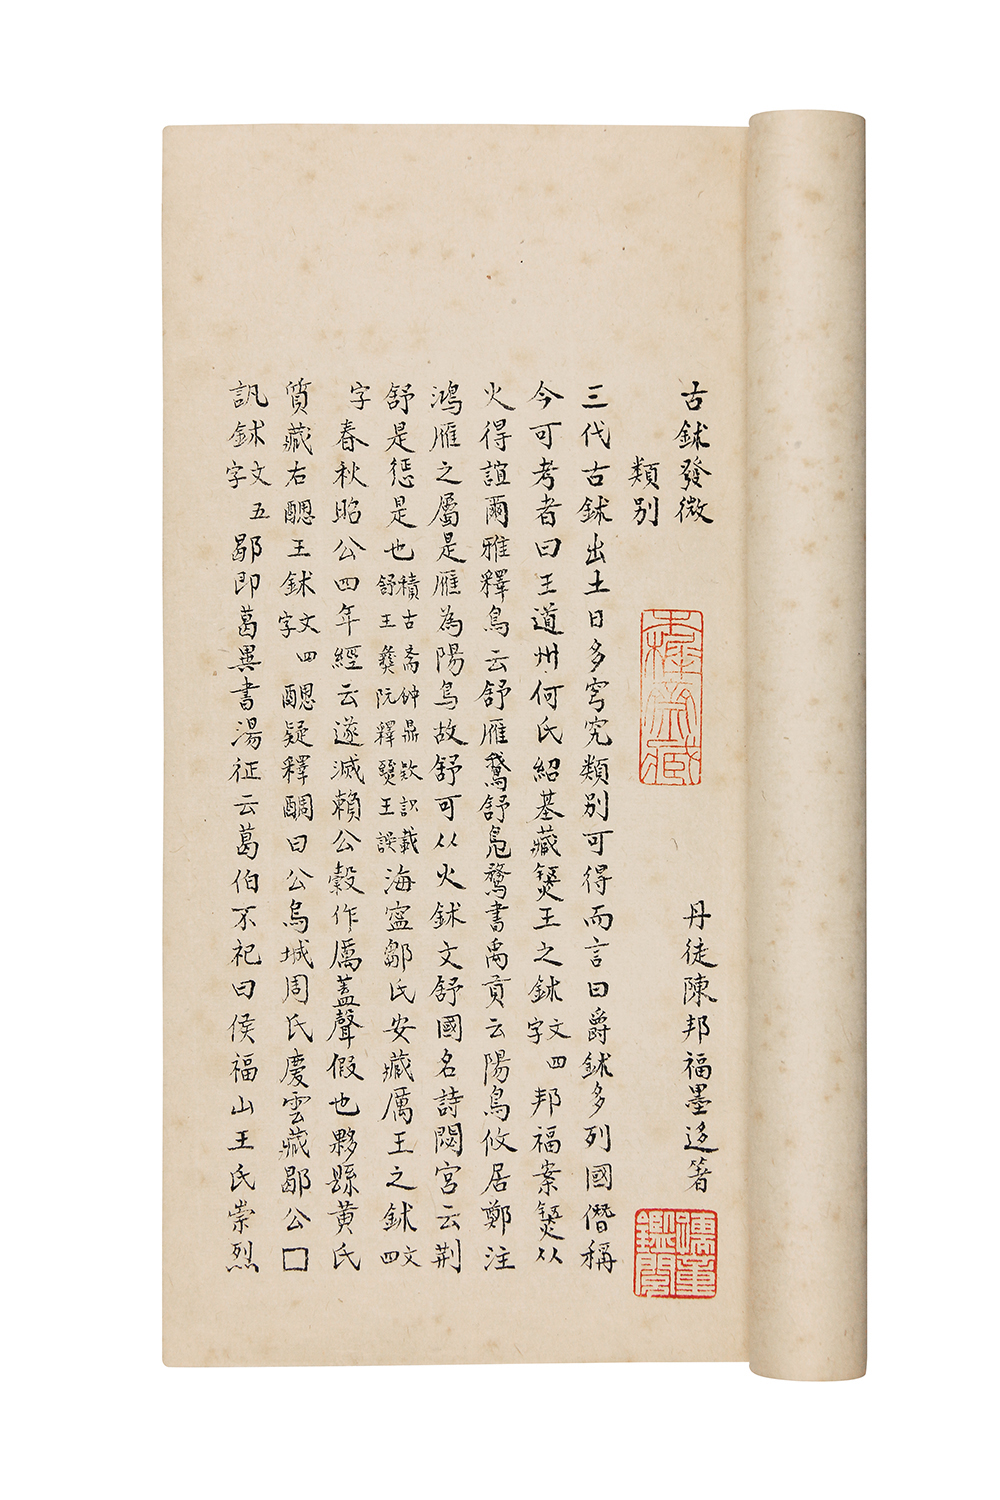 古鉥發微
丹徒陳邦福墨迻箸
類別
三代古鉥出土日多穹究類別可得而言曰爵鉥多列國僭稱
今可考者曰王道州何氏紹基藏王之鉥文四字邦福案从
火得誼爾雅釋鳥云舒雁鵞舒鳧鶩書禹貢云陽鳥攸居鄭注
鴻雁之屬是雁為陽鳥故舒可从火鉥文舒國名詩閟宮云荆
舒是懲是也積古斋鈡鼎欵識載舒王彝阮釋王誤海寍鄒氏安藏厲王之鉥文四
字春秋昭公四年經云遂滅賴公穀作厲蓋聲假也夥縣黄氏
質藏右王鉥文四字疑釋酮曰公烏城周氏慶雲藏鄙公□
訊鉥文五字即葛異書湯征云葛伯不祀曰侯福山王氏崇烈
鑑閱